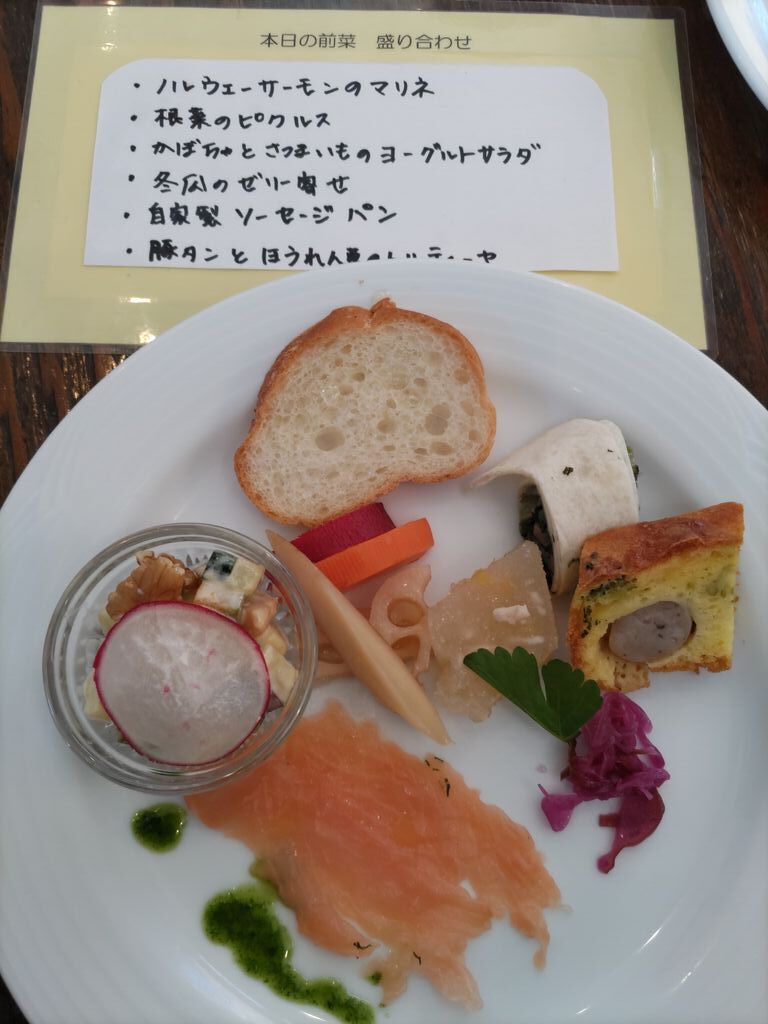 本日の前菜 盛り合わせ
・ノルウェーサーモンのマリネ
・根菜のピクルス
・かぼちゃとさつまいものヨーグルトサラダ
・冬瓜のゼリー寄せ
・自家製 ソーセージパン
・豚タンとほうれん草のトルティーヤ